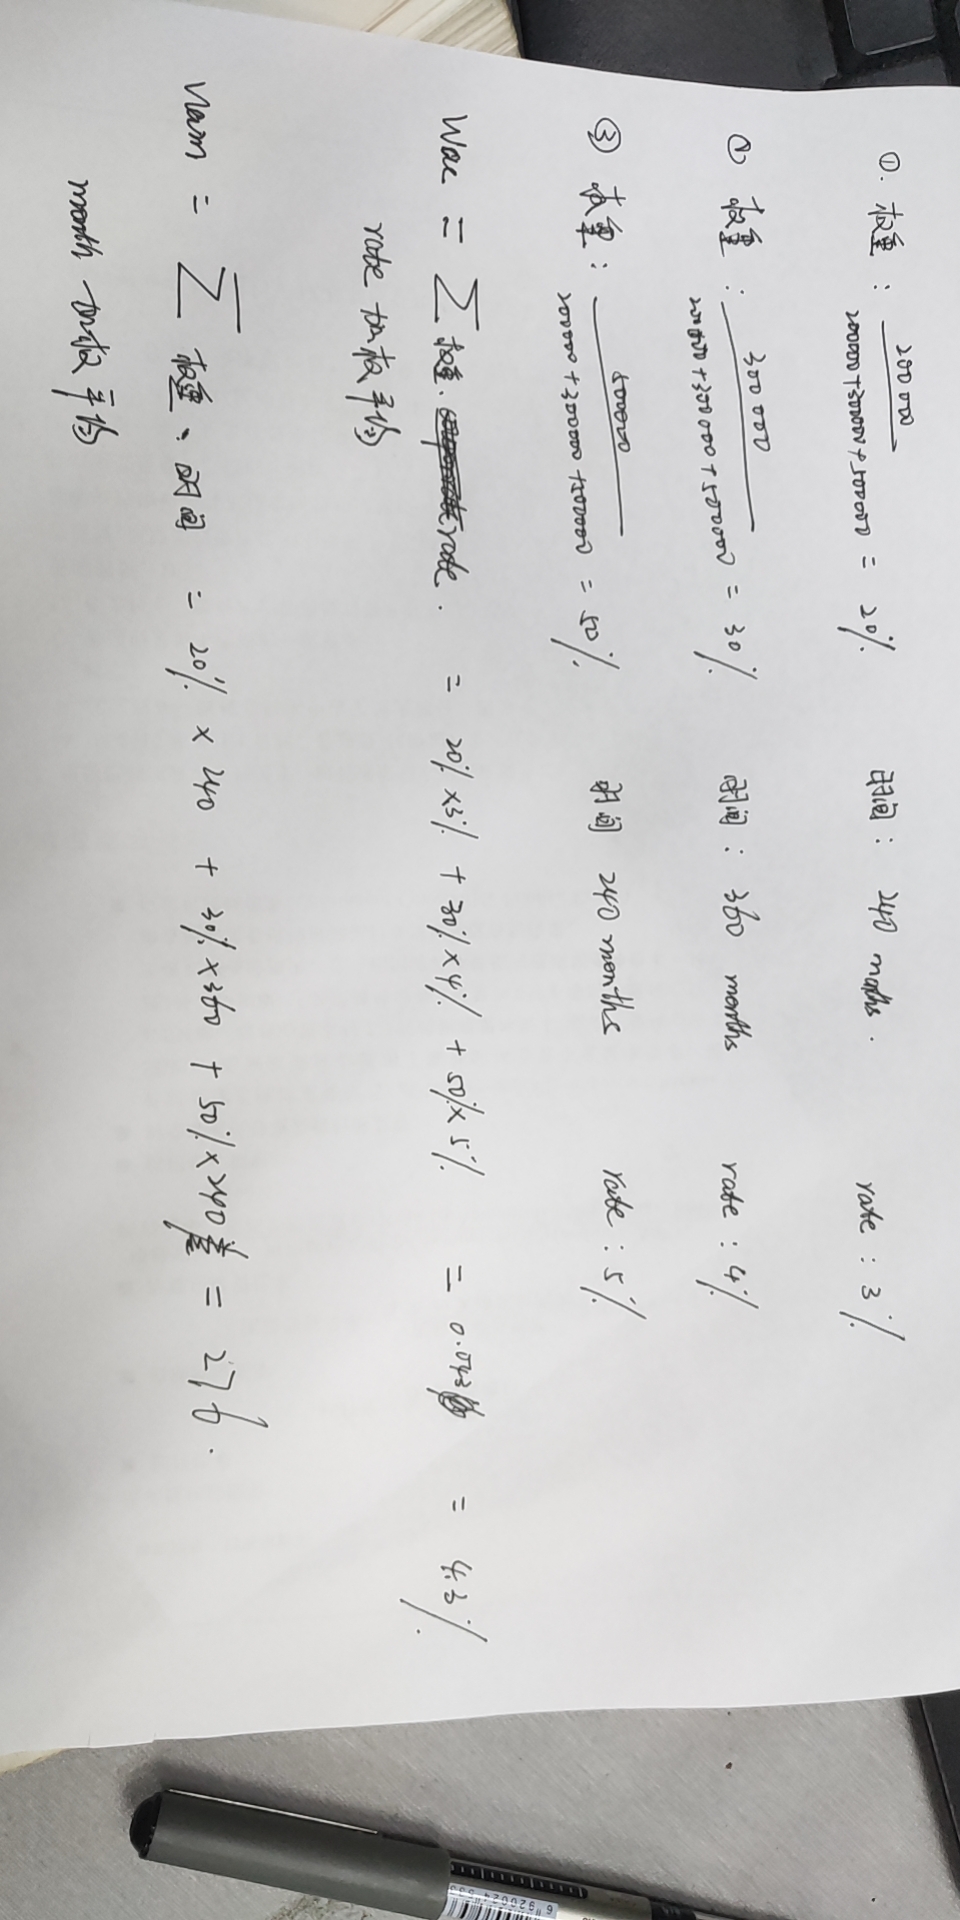 ①. 权重: 200 000 / 200000+300000+500000 = 20% 时间: 240 months. rate: 3%
② 权重: 300 000 / 200000+300000+500000 = 30% 时间: 360 months rate: 4%
③ 权重: 500000 / 200000+300000+500000 = 50% 时间 240 months rate: 5%
Wac = ∑ 权重. rate. = 20%×3% + 30%×4% + 50%×5% = 0.043 = 4.3%
rate 加权平均
Wam = ∑ 权重、时间 = 20% × 240 + 30%×360 + 50%×240 = 276.
month 加权平均